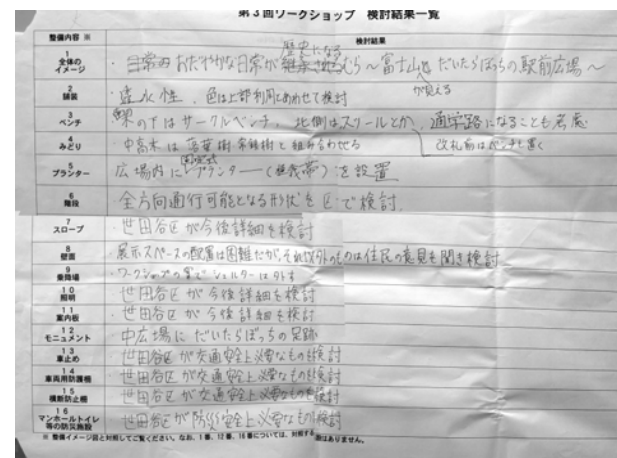 第3回ワークショップ 検討結果一覧
整備内容 ※ 検討結果
1 全体のイメージ
歴史になる
・日常的 おだやかな日常が継承されるむら～富士山とだいたらぼっちの駅前広場～
が見える
2 舗装 ・透水性、色は上部利用にあわせて検討
3 ベンチ ・の下はサークルベンチ、北側はスツールとか、通学路になることも考慮
4 みどり ・中高木は落葉樹 常緑樹と組み合わせる 改札前はベンチを置く
固定式
5 プランター 広場内にプランター(植栽帯)を設置
6 階段 全方向通行可能となる形状を区で検討。
7 スロープ ・世田谷区が今後詳細を検討
8 壁面 ・展示スペースの配置は困難だが、それ以外のものは住民の意見も聞き検討
9 乗降場 ・ワークショップの案でシェルターは外す
10 照明 ・世田谷区が今後詳細を検討
11 案内板 ・世田谷区が今後詳細を検討
12 モニュメント ・中広場にだいたらぼっちの足跡
13 車止め ・世田谷区が交通安全上必要なものを検討
14 車両用防護柵 ・世田谷区が交通安全上必要なものを検討
15 横断防止柵 ・世田谷区が交通安全上必要なものを検討
16 マンホールトイレ等の防災施設 ・世田谷区が防災安全上必要なものを検討
※ 整備イメージ図と対照してご覧ください。なお、1番、12番、16番については、対照する図はありません。